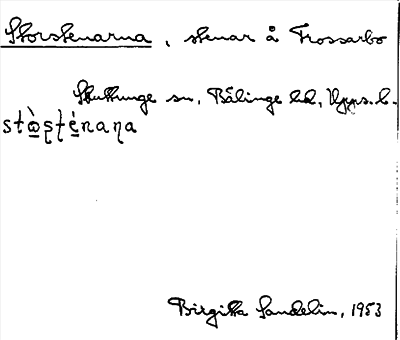 Storstenarna, stenar å Trossarbo
Skuttunge sn, Bälinge hd, Upps. l.
stò̲ʂʈé̲naɳa
Birgitta Sandelin, 1953